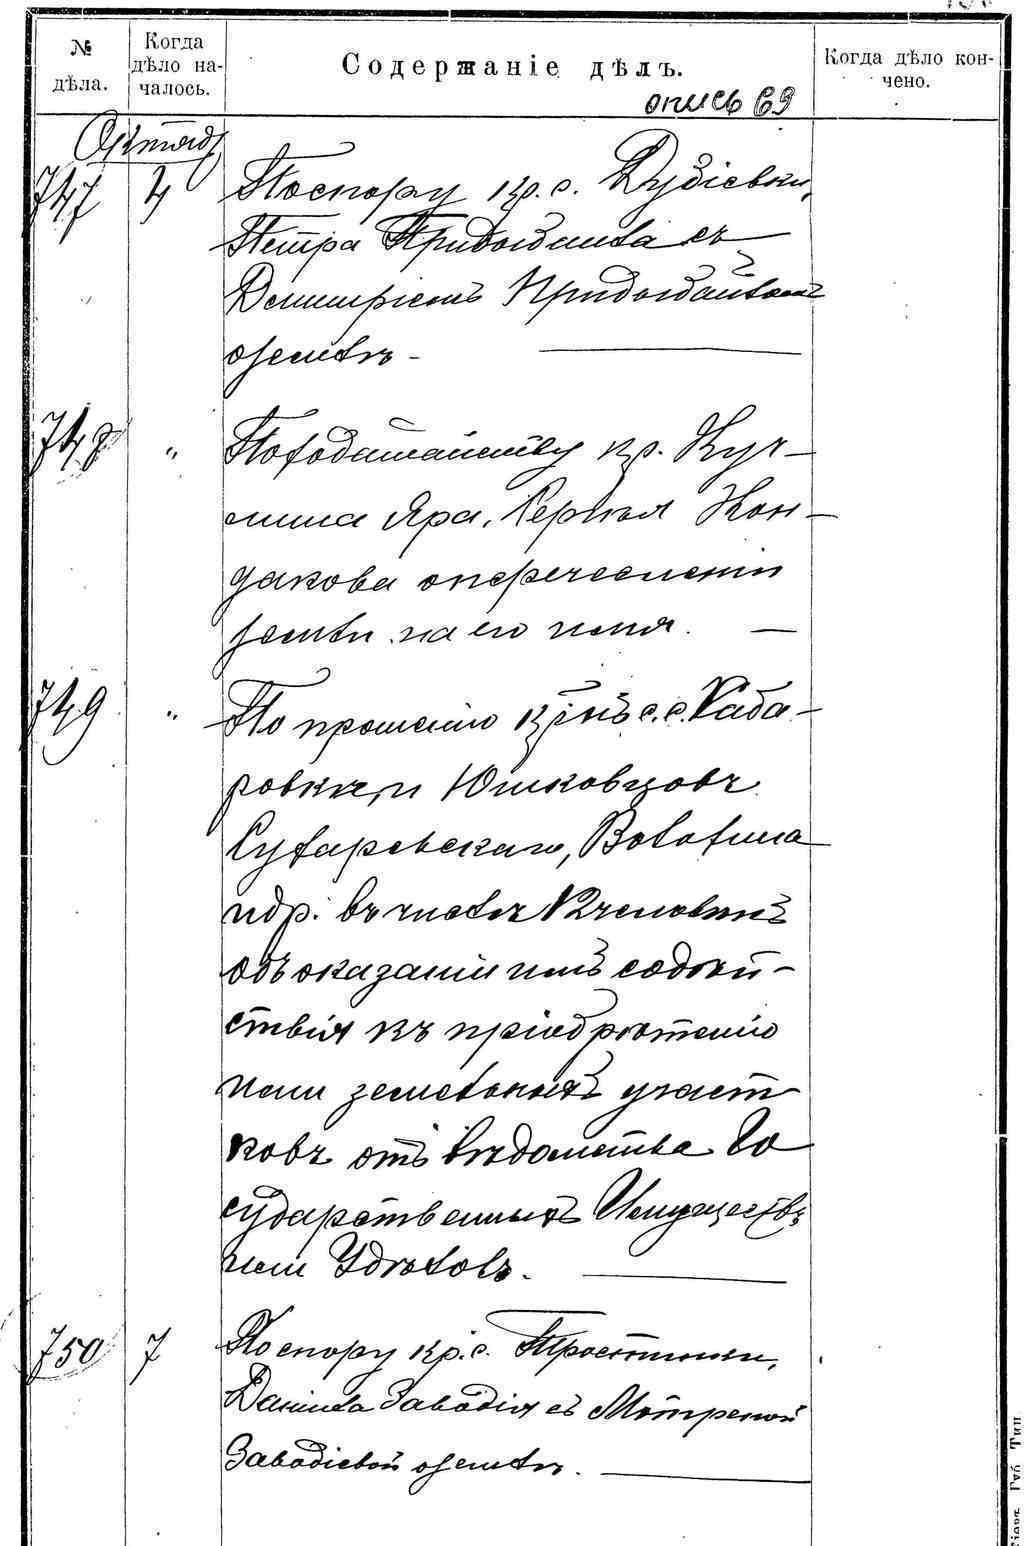 № дѣла.
Когда дѣло на-
чалось.
Содержаніе дѣлъ.
Когда дѣло кон-
чено.
опись 69
Октяб.
747 4 По спору кр. с. Дубіевки,
Петра Придыдаива съ
Дмитріемъ Придыдайвомъ
о землѣ -
748 " По ходатайству кр. Куч-
мина Яра, Сергѣя Кон-
дакова о перечесленіи
земли на его имя. —
749 " По прошенію кр-нъ с. с. Хаба-
ровки, и Юшковцовъ
Сухаревскаго, Волохина
и др. въ числѣ 12 человѣкъ
объ оказаніи имъ содѣй-
ствія къ пріобрѣтенію
ими земельныхъ участ-
ковъ отъ вѣдомства Го
сударственныхъ Имуществъ
или Удѣловъ.
750 7 По спору кр. с. Тростинки,
Данила Завадія съ Мотреной
Завадіевой о землѣ.
Кіевъ Губ Тип